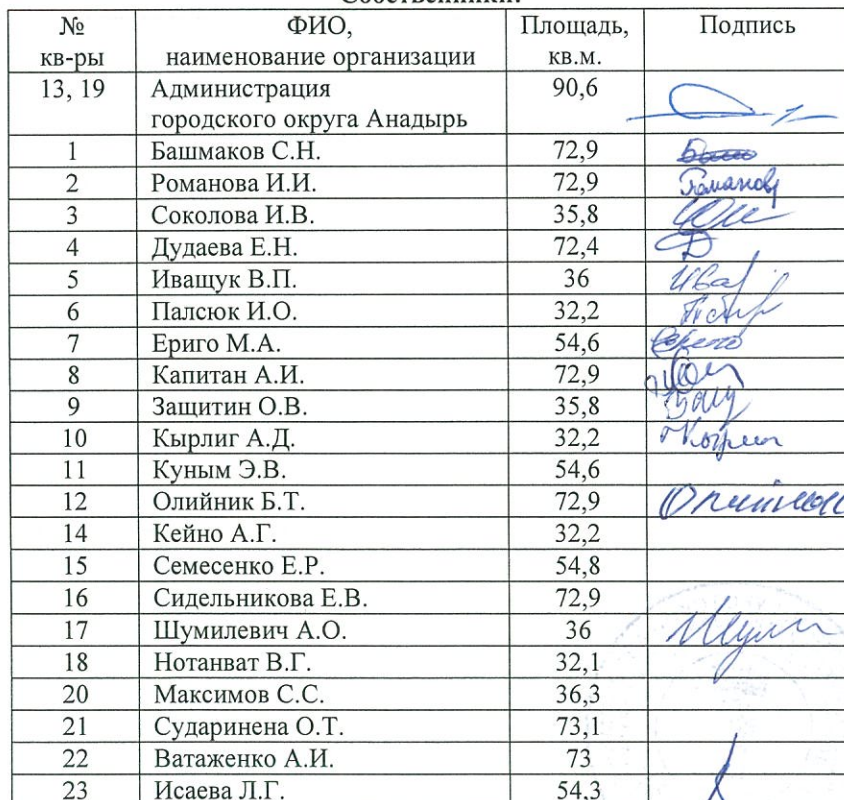 Собственники:
№ кв-ры ФИО, наименование организации Площадь, кв.м. Подпись
13, 19 Администрация городского округа Анадырь 90,6
1 Башмаков С.Н. 72,9
2 Романова И.И. 72,9 Романова
3 Соколова И.В. 35,8
4 Дудаева Е.Н. 72,4
5 Иващук В.П. 36
6 Палсюк И.О. 32,2
7 Ериго М.А. 54,6
8 Капитан А.И. 72,9
9 Защитин О.В. 35,8
10 Кырлиг А.Д. 32,2
11 Куным Э.В. 54,6
12 Олийник Б.Т. 72,9
14 Кейно А.Г. 32,2
15 Семесенко Е.Р. 54,8
16 Сидельникова Е.В. 72,9
17 Шумилевич А.О. 36
18 Нотанват В.Г. 32,1
20 Максимов С.С. 36,3
21 Сударинена О.Т. 73,1
22 Ватаженко А.И. 73
23 Исаева Л.Г. 54,3